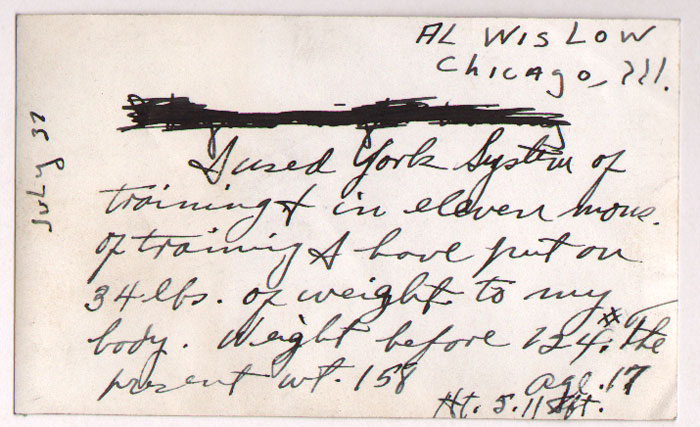 AL WISLOW
Chicago, Ill.
July 37
I used York System of
training & in eleven mons.
of training I have put on
34 lbs. of weight to my
body. Weight before 124# the
present wt. 158
age. 17
Ht. 5.11 ft.